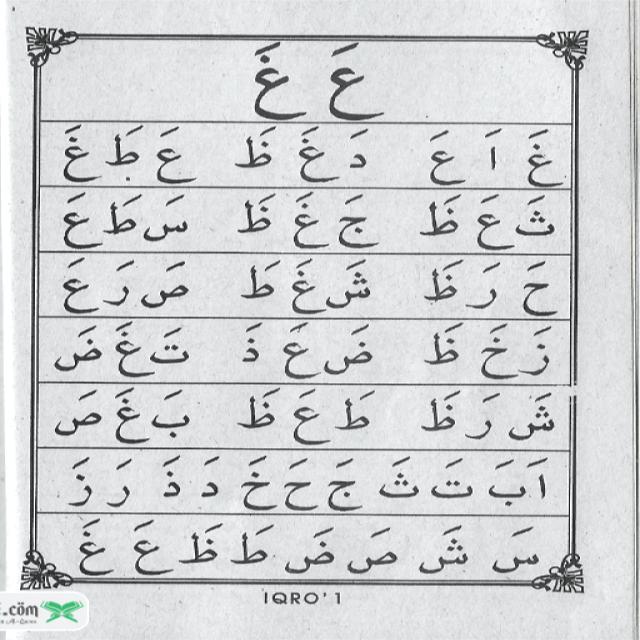 عَ غَ
غَ اَ عَ دَ غَ ظَ عَ طَ غَ
ثَ عَ ظَ جَ غَ ظَ سَ طَ عَ
حَ رَ ظَ شَ غَ طَ صَ رَ عَ
زَ خَ ظَ ضَ عَ ذَ تَ غَ ضَ
شَ رَ ظَ طَ عَ ظَ بَ غَ صَ
اَ بَ تَ ثَ جَ حَ خَ دَ ذَ رَ زَ
سَ شَ صَ ضَ طَ ظَ عَ غَ
IQRO' 1
.com